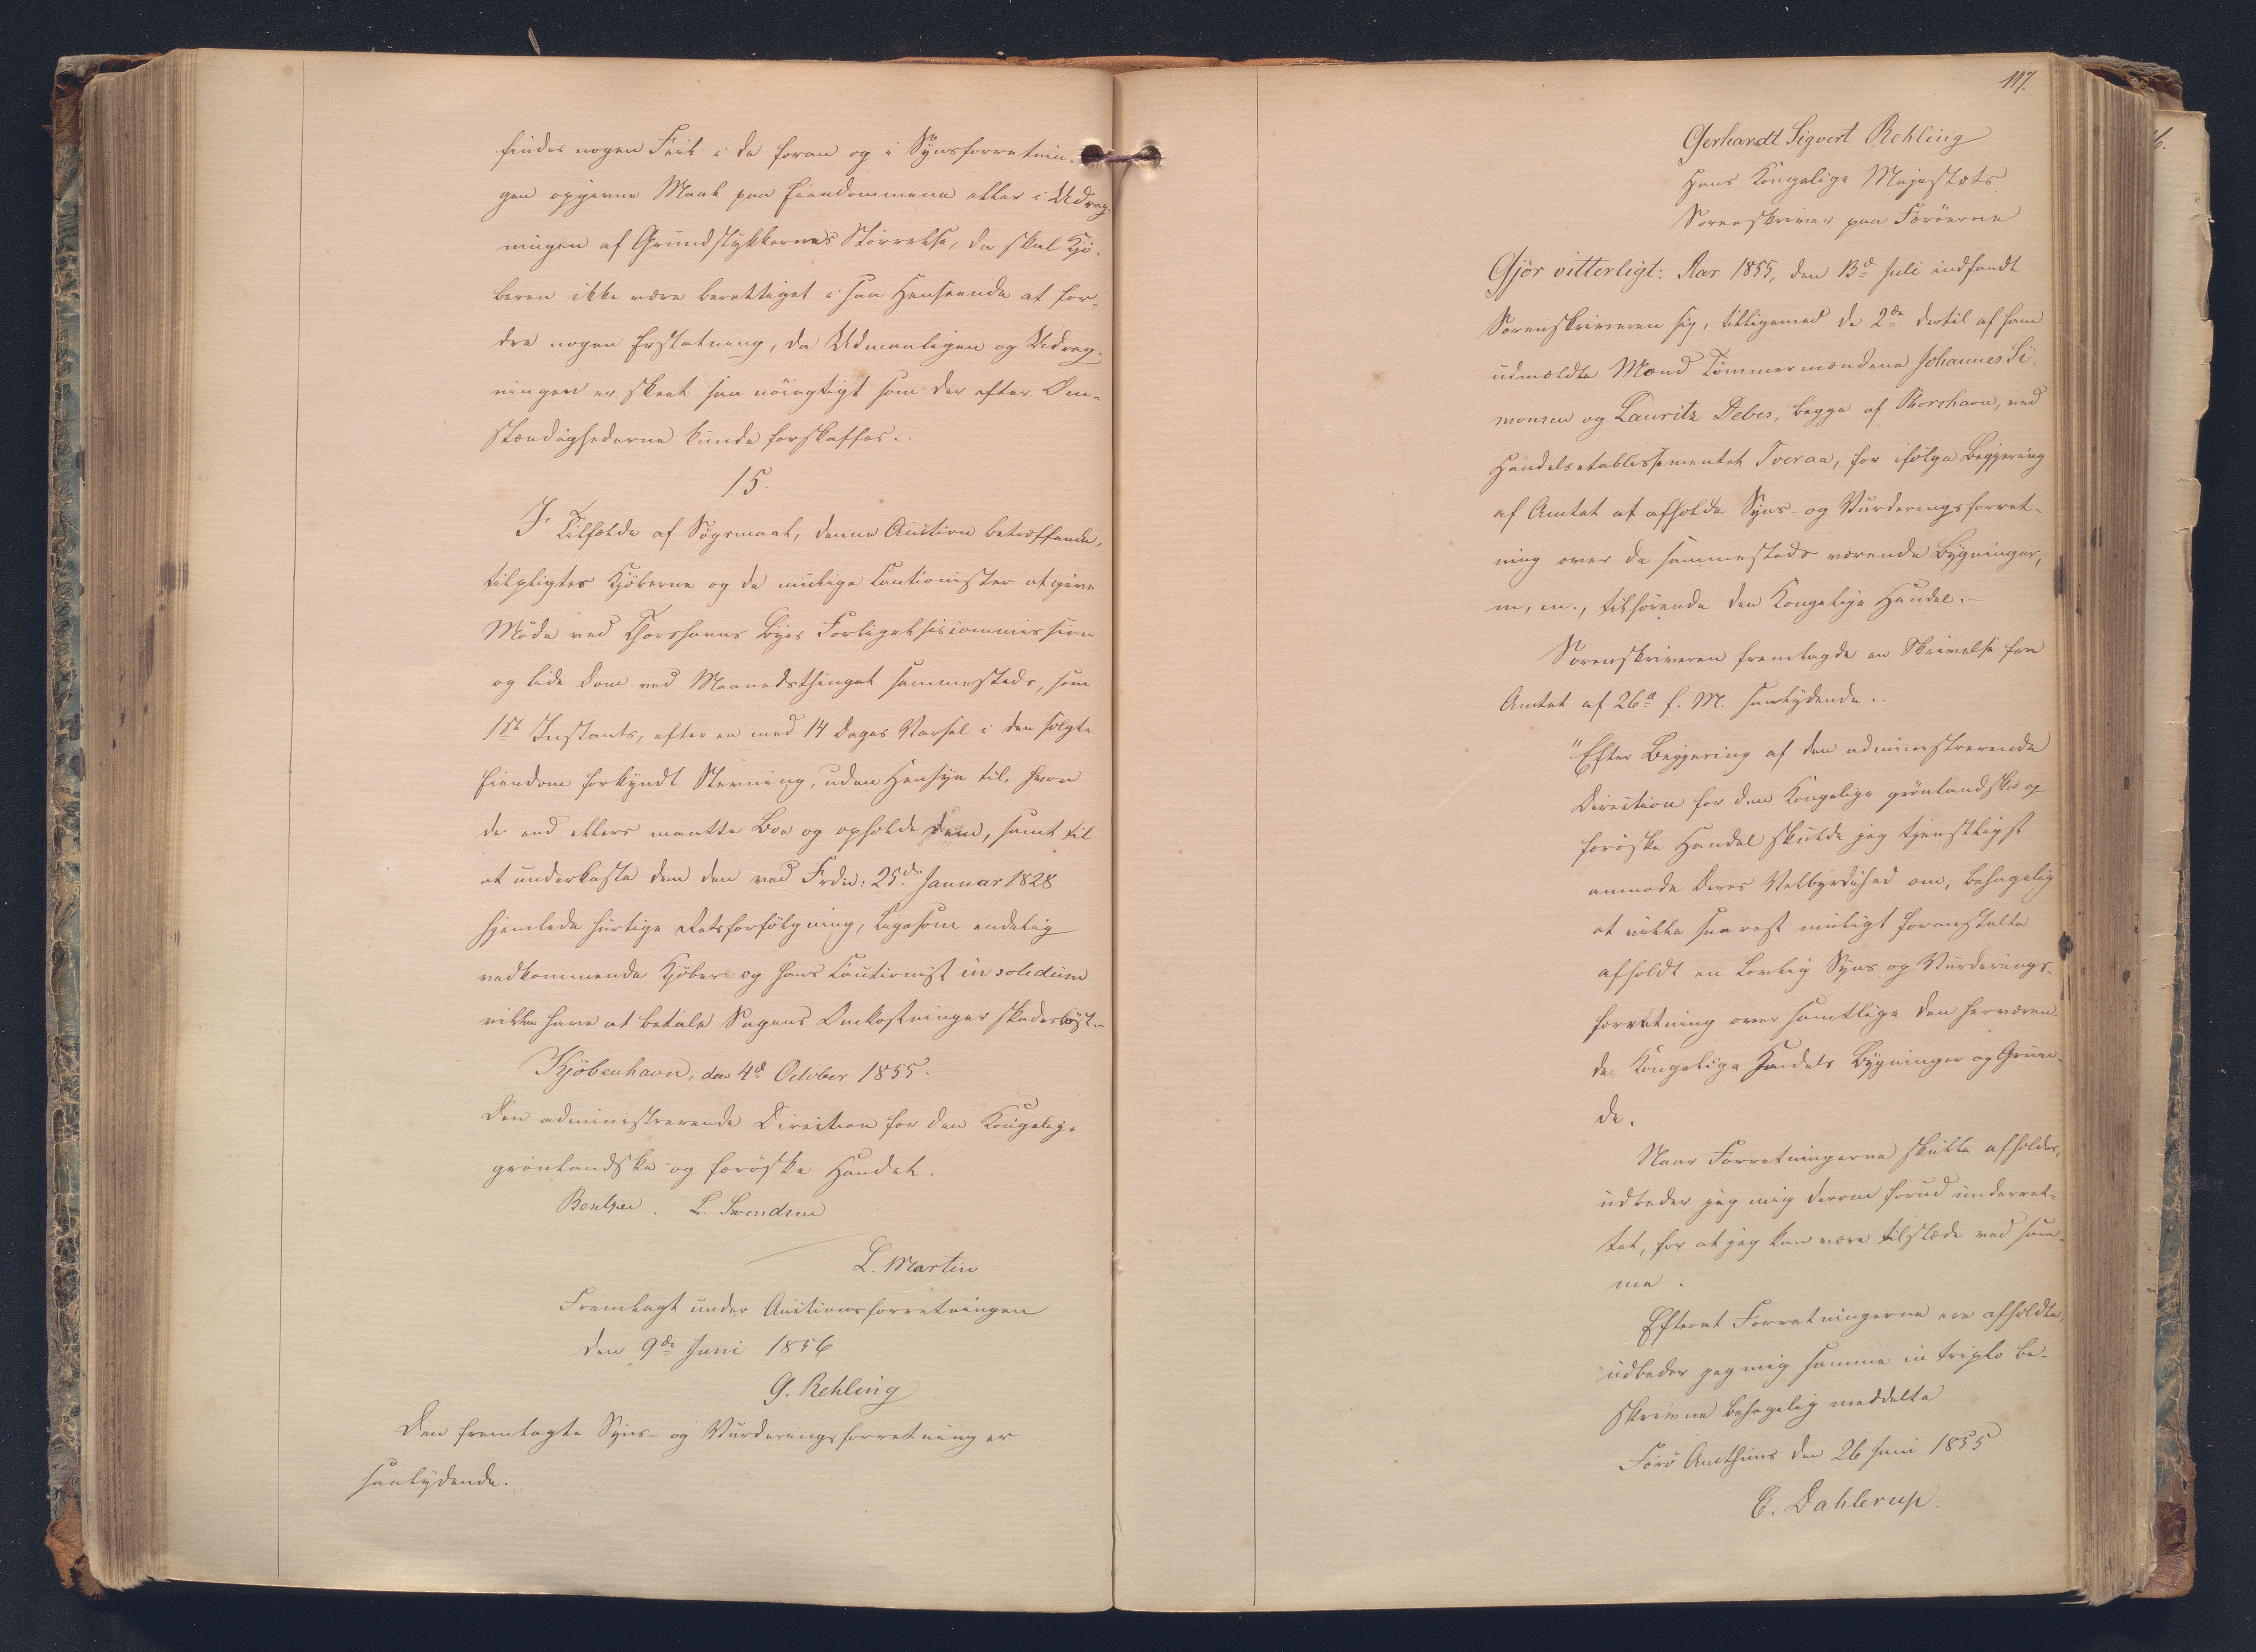 findes nogen Feil i de foran og i Synsforretnin-
gen opgivne Maal paa Eiendommene eller i Udreg-
ningen af Grundstykkernes Størrelse, da skal Kjø-
beren ikke være berettiget i saa Henseende at for-
dre nogen Erstatning, da Udmaalingen og Udreg-
ningen er skeet saa nöiagtigt som der efter Om-
stændighederne kunde forskaffes.
15.
I Tilfælde af Søgsmaal, denne Auction betræffende,
tilpligtes Kjöberne og de mulige Cautionister at give
Møde ved Thorshavns Byes Forligelsescommission
og lide Dom ved Maanedsthinget sammesteds, som
1ste Instants, efter en med 14 Dages Varsel i den solgte
Eiendom forkyndt Stevning, uden Hensyn til, hvor
de end ellers maatte boe og opholde dem, samt til
at underkaste dem den ved Frdn: 25de Januar 1828
hjemlede hurtige Retsforfölgning, ligesom endelig
vedkommende Kjöber og hans Cautionist in solidum
ville have at betale Sagens Omkostninger skadeslöst.
Kjöbenhavn, den 4d October 1855.
Den administrerende Direction for den Kongelige
grönlandske og færöske Handel.
Bentzen. L. Svendsen
L. Martin
Fremlagt under Auctionsforretningen
den 9de Juni 1856
G. Rehling
Den fremlagte Syns- og Vurderingsforretning er
saalydende.
117.
Gerhardt Sigvert Rehling
Hans Kongelige Majestæts
Sorenskriver paa Færöerne
Gjör vitterligt: Aar 1855, den 13d Juli indfandt
Sorenskriveren sig, tilligemed de 2de dertil af ham
udmældte Mænd Tömmermændene Johannes Si-
monsen og Lauritz Debes, begge af Thorshavn, ved
Handelsetablissementet Tveraa, for ifölge Begjering
af Amtet at afholde Syns- og Vurderingsforret-
ning over de sammesteds værende Bygninger,
m, m., tilhörende den Kongelige Handel.-
Sorenskriveren fremlagde en Skrivelse fra
Amtet af 26d f. M. saalydende..
"Efter Begjering af den administrerende
Direction for den Kongelige grönlandske og
færöske Handel skulde jeg tjenstligst
anmode Deres Velbyrdighed om, behagelig
at ville snarest muligt foranstalte
afholdt en lovlig Syns og Vurderings-
forretning over samtlige den herværen-
de Kongelige Handels Bygninger og Grun-
de.
Naar Forretningerne skulle afholdes,
udbeder jeg mig derom forud underret-
tet, for at jeg kan være tilstæde ved sam-
me.
Efterat Forretningerne ere afholdte,
udbeder jeg mig samme in triplo be-
skrevne behagelig meddelte
Færö Amthuus den 26 Juni 1855
C. Dahlerup.